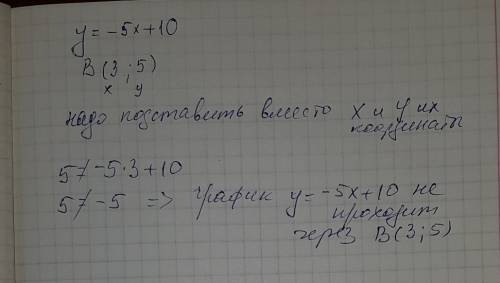 y = -5x+10
B (3 ; 5)
x y
надо подставить вместо x и y их
координаты
5 ≠ -5·3+10
5 ≠ -5 => график y = -5x+10 не
проходит
через B(3;5)